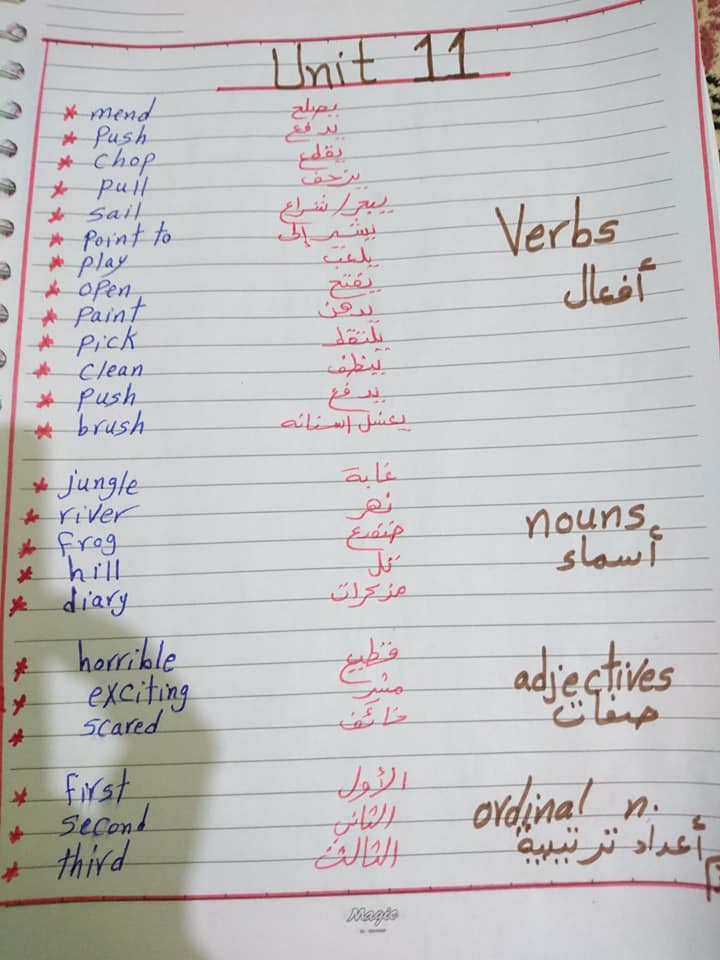 Unit 11
* mend يصلح
* Push يدفع
* Chop يقطع
* Pull يزحف
* sail يبحر/شراع
* Point to يشير إلى
* play يلعب
* open يفتح
* paint يدهن
* pick يلتقط
* clean ينظف
* Push يدفع
* brush يغسل اسنانه
Verbs
أفعال
* jungle غابة
* river نهر
* frog ضفدع
* hill تل
* diary مذكرات
nouns
أسماء
* horrible فظيع
* exciting مثير
* scared خائف
adjectives
صفات
* first الأول
* second الثاني
* third الثالث
ordinal n.
أعداد ترتيبية
Magic